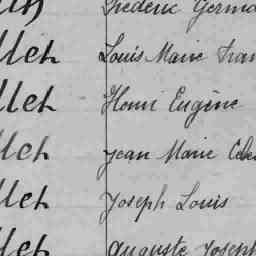 Frédéric Germa
llet Louis Marie Fran
llet Henri Eugène
llet Jean Marie Cele
llet Joseph Louis
llet Auguste Joseph